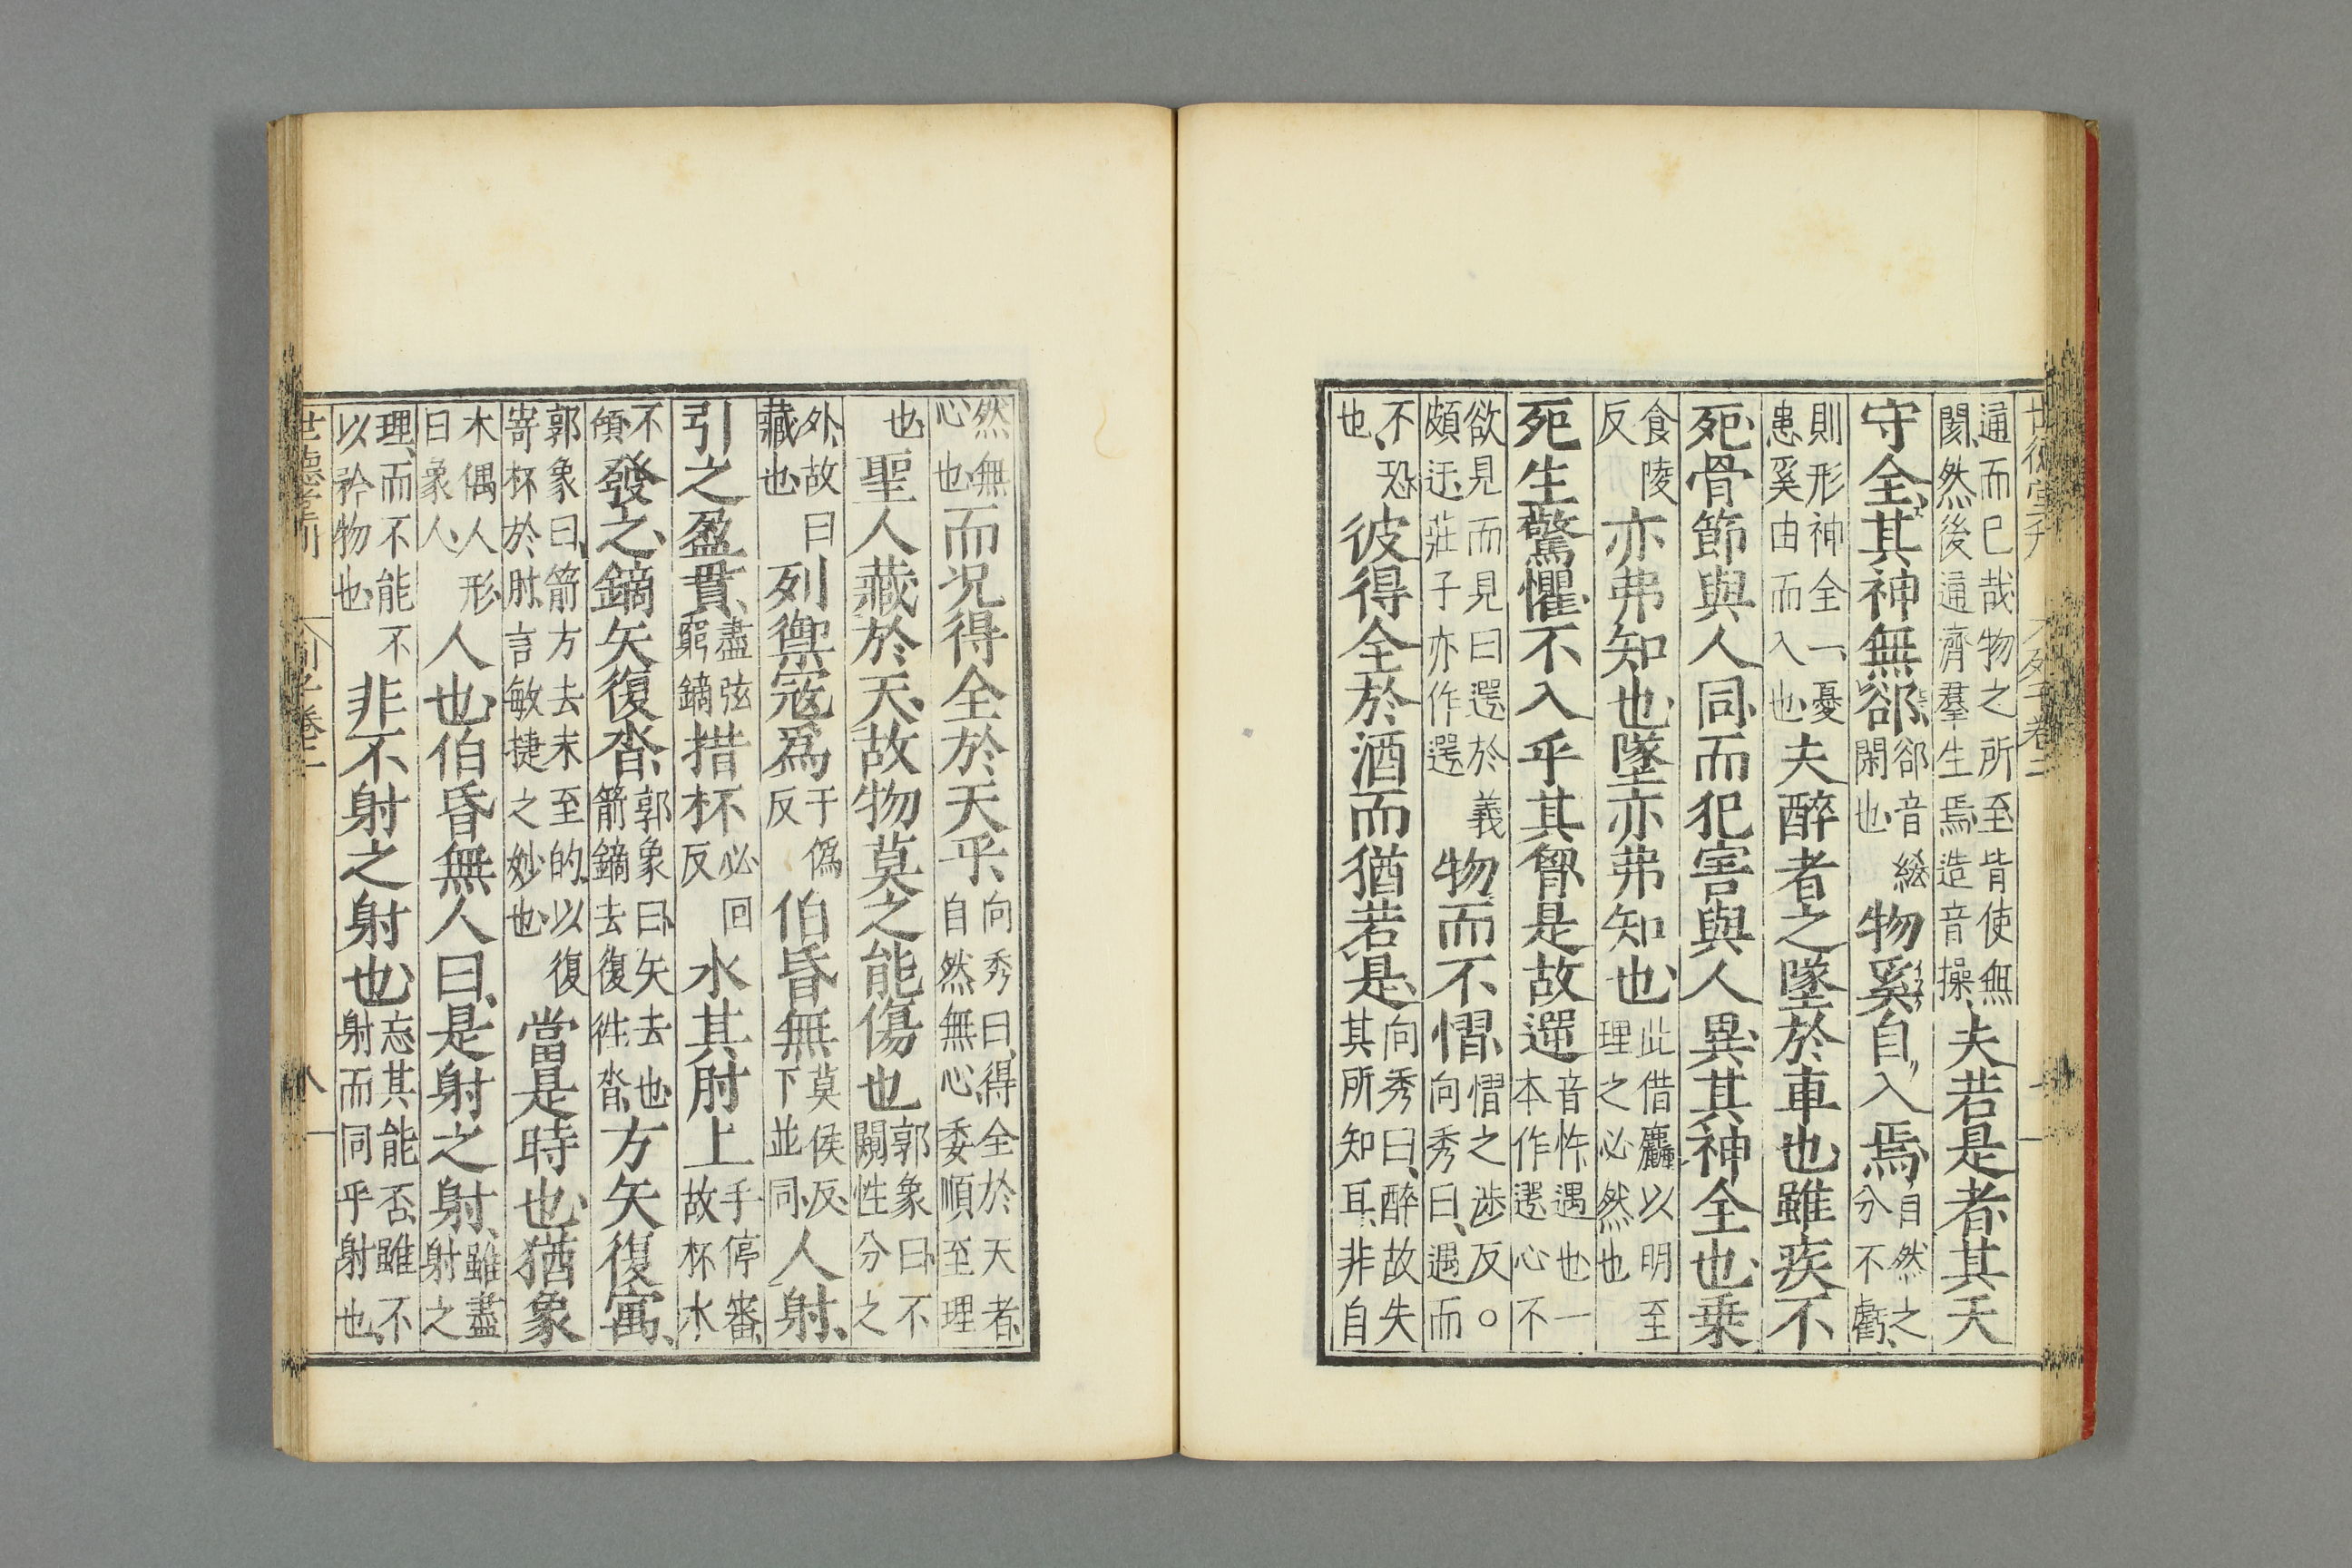 世德堂刊 列子卷二
通而已哉物之所至皆使無
閡然後通濟羣生焉造音操
夫若是者其天
守全其神無郤
郤音綌
閑也
物奚自入焉
自然之
分不虧
則形神全一憂
患奚由而入也
夫醉者之墜於車也雖疾不
死骨節與人同而犯害與人異其神全也乗
食陵
反
亦弗知也墜亦弗知也
此借麤以明至
理之必然也
死生驚懼不入乎其胷是故遻
音忤遇也一
本作遻心不
欲見而見曰遻於義
頗迂莊子亦作遻
物而不慴
慴之涉反○
向秀曰遇而
不恐
也
彼得全於酒而猶若是
向秀曰醉故失
其所知耳非自
然無
心也
而况得全於天乎
向秀曰得全於天者
自然無心委順至理
也
聖人藏於天故物莫之能傷也
郭象曰不
闚性分之
外故曰
藏也
列禦寇爲
于僞
反
伯昏無
莫侯反
下並同
人射
引之盈貫
盡弦
窮鏑
措杯
必回
反
水其肘上
手停審
故杯水
不
傾
發之鏑矢復沓
郭象曰矢去也
箭鏑去復徃沓
方矢復寓
郭象曰箭方去未至的以復
寄杯於肘言敏捷之妙也
當是時也猶象
木偶人形
曰象人
人也伯昏無人曰是射之射
雖盡
射之
理而不能不
以矜物也
非不射之射也
忘其能否雖不
射而同乎射也
世德堂刊 列子卷二 八